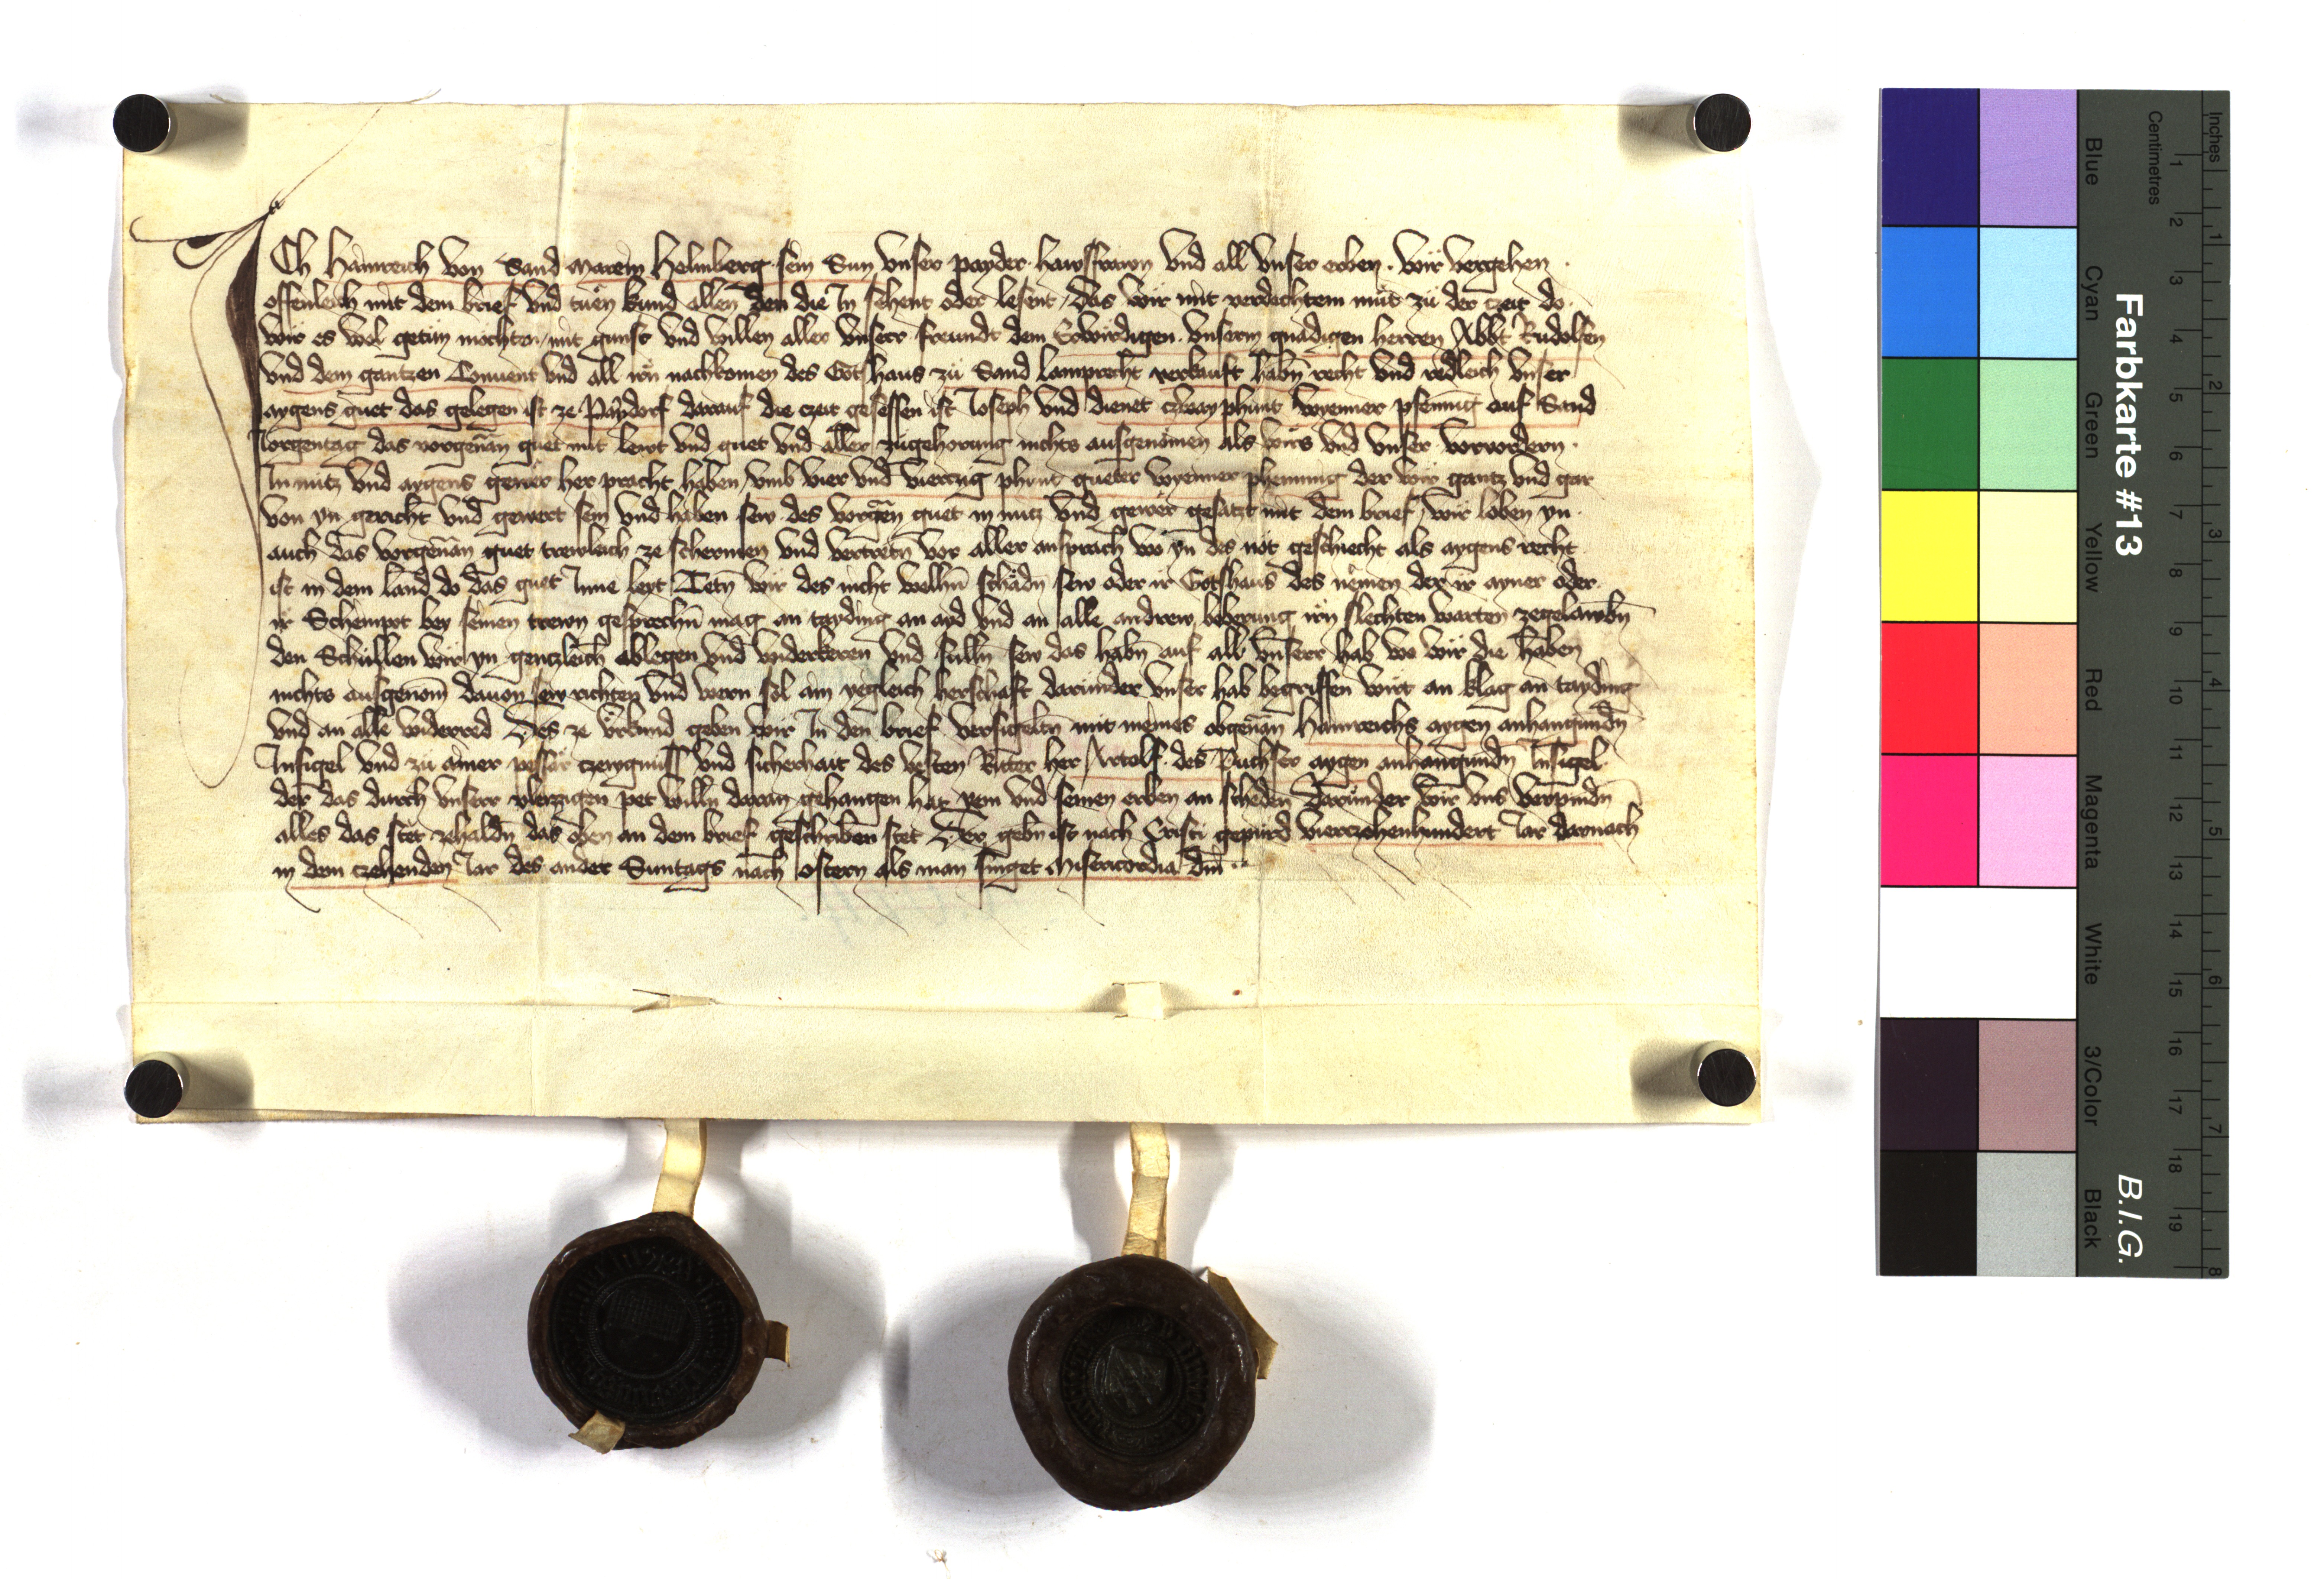 ICh Hainreich von Sand Marein Helmberg sein Sun vnser payder hawsfrawn vnd all vnser erben. Wir vergehen
offenleich mit dem brief vnd tuen kund allen den die In sehent oder lesent, das wir mit verdachtem mut zu der czeit do
wir es wol getun mochten, mit gunst vnd willen aller vnserr freundt dem Erwirdigen vnserm gnadigen herren Abbt Rudolfen
vnd dem gantzen Conuent vnd all irn nachkomen des Gotshaus zu Sand Lamprecht verkauft habn recht vnd redleich vnser
aygens guet das gelegen ist ze Paydorf darauf die czeit gesessen ist Joseph vnd dienet czway phunt wyenner pfennig auf Sand
Jorgentag das vorgenan guet mit lewt vnd guet vnd aller zugehorung nichts ausgenomen als wirs vnd vnser vorvordern
In nutz vnd aygens gewer her pracht haben, vmb vier vnd vierczig phunt gueter wyenner phenning der wir gantz vnd gar
von yn gericht vnd gewert sein vnd haben sew des vorgen guet in nutz vnd gewer gesatzt mit dem brief, wir loben yn
auch das vorgenan guet trewleich ze schermen vnd vertretn vor aller ansprach wo yn des not geschiecht als aygens recht
ist in dem land do das guet Inne leyt Tetn wir des nicht welhn schadn sew oder ir Gotshaus des nemen der ir ayner oder
ir Schempot bey seinen trewn gesprechn mag an tayding an ayd vnd an alle andrew beberung irn slechten warten zegelawbn
den Schullen wir yn gentzleich ablegen vnd widerkeren vnd sulln sew das habn auf all vnserr hab wo wir die haben
nichts ausgenom dauon sew richten vnd wern sol ain yegleich herschaft darunder vnser hab begriffen wirt an klag an tayding
vnd an alle widerred Des ze vrkund geben wir In den brief versigeltn mit meines obgenan Hainreichs aygen anhangundn
Insigel vnd zu ainer pesser czewgnuss vnd sicherhait des vesten Ritter her Artolf des Tuchser aygen anhangundn Insigel
der das durch vnserr vleizzigen pet willn daran gehangen hat yem vnd seinen erben an scheden Darunder wir vns verpindn
alles das stet zehaldn das oben an dem brief geschriben stet Der gebn ist nach Cristi gepurd vierczehenhundert Jar darnach
in dem czehenden Jar des ander Suntags nach ostern als man singet Misericordia dni
Farbkarte #13
B.I.G.
Inches 1 2 3 4 5 6 7 8
Centimetres 1 2 3 4 5 6 7 8 9 10 11 12 13 14 15 16 17 18 19
Blue
Cyan
Green
Yellow
Red
Magenta
White
3/Color
Black